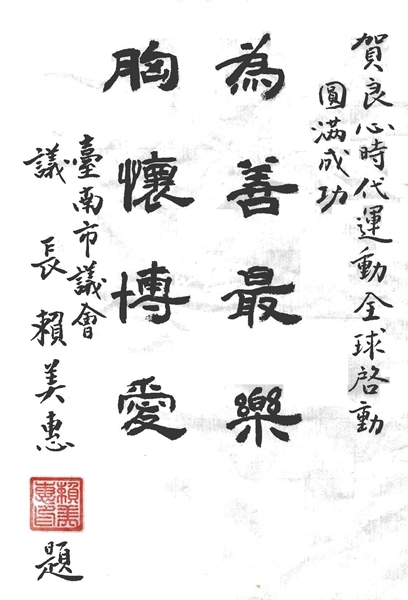 賀良心時代運動全球啓動
圓滿成功
為善最樂
胸懷博愛
臺南市議會
議長賴美惠
賴美惠印
題